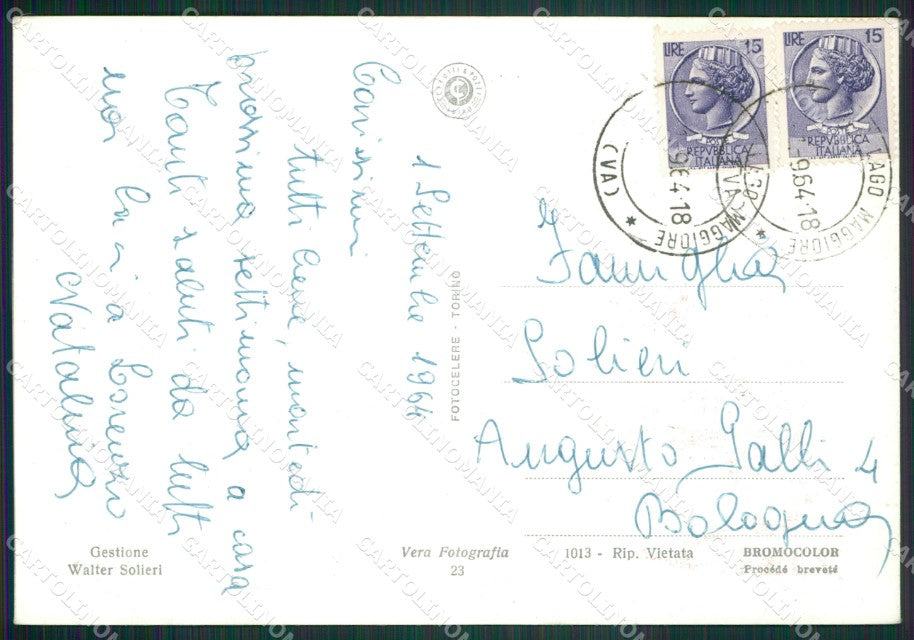 1 Settembre 1964
Carissimi
tutti bene, martedì
prossima settimana a casa
Tanti saluti da tutti
noi baci a Lorenzo
Natalina
LIRE 15
REPVBBLICA
ITALIANA
LIRE 15
REPVBBLICA
ITALIANA
LAGO MAGGIORE
(VA)
964·18
LAGO MAGGIORE
(VA)
964·18
Famiglia
Solieri
Augusto Galli 4
Bologna
FOTOCELERE - TORINO
Gestione
Walter Solieri
Vera Fotografia
23
1013 - Rip. Vietata
BROMOCOLOR
Procédé breveté
CARTOLINOMANIA